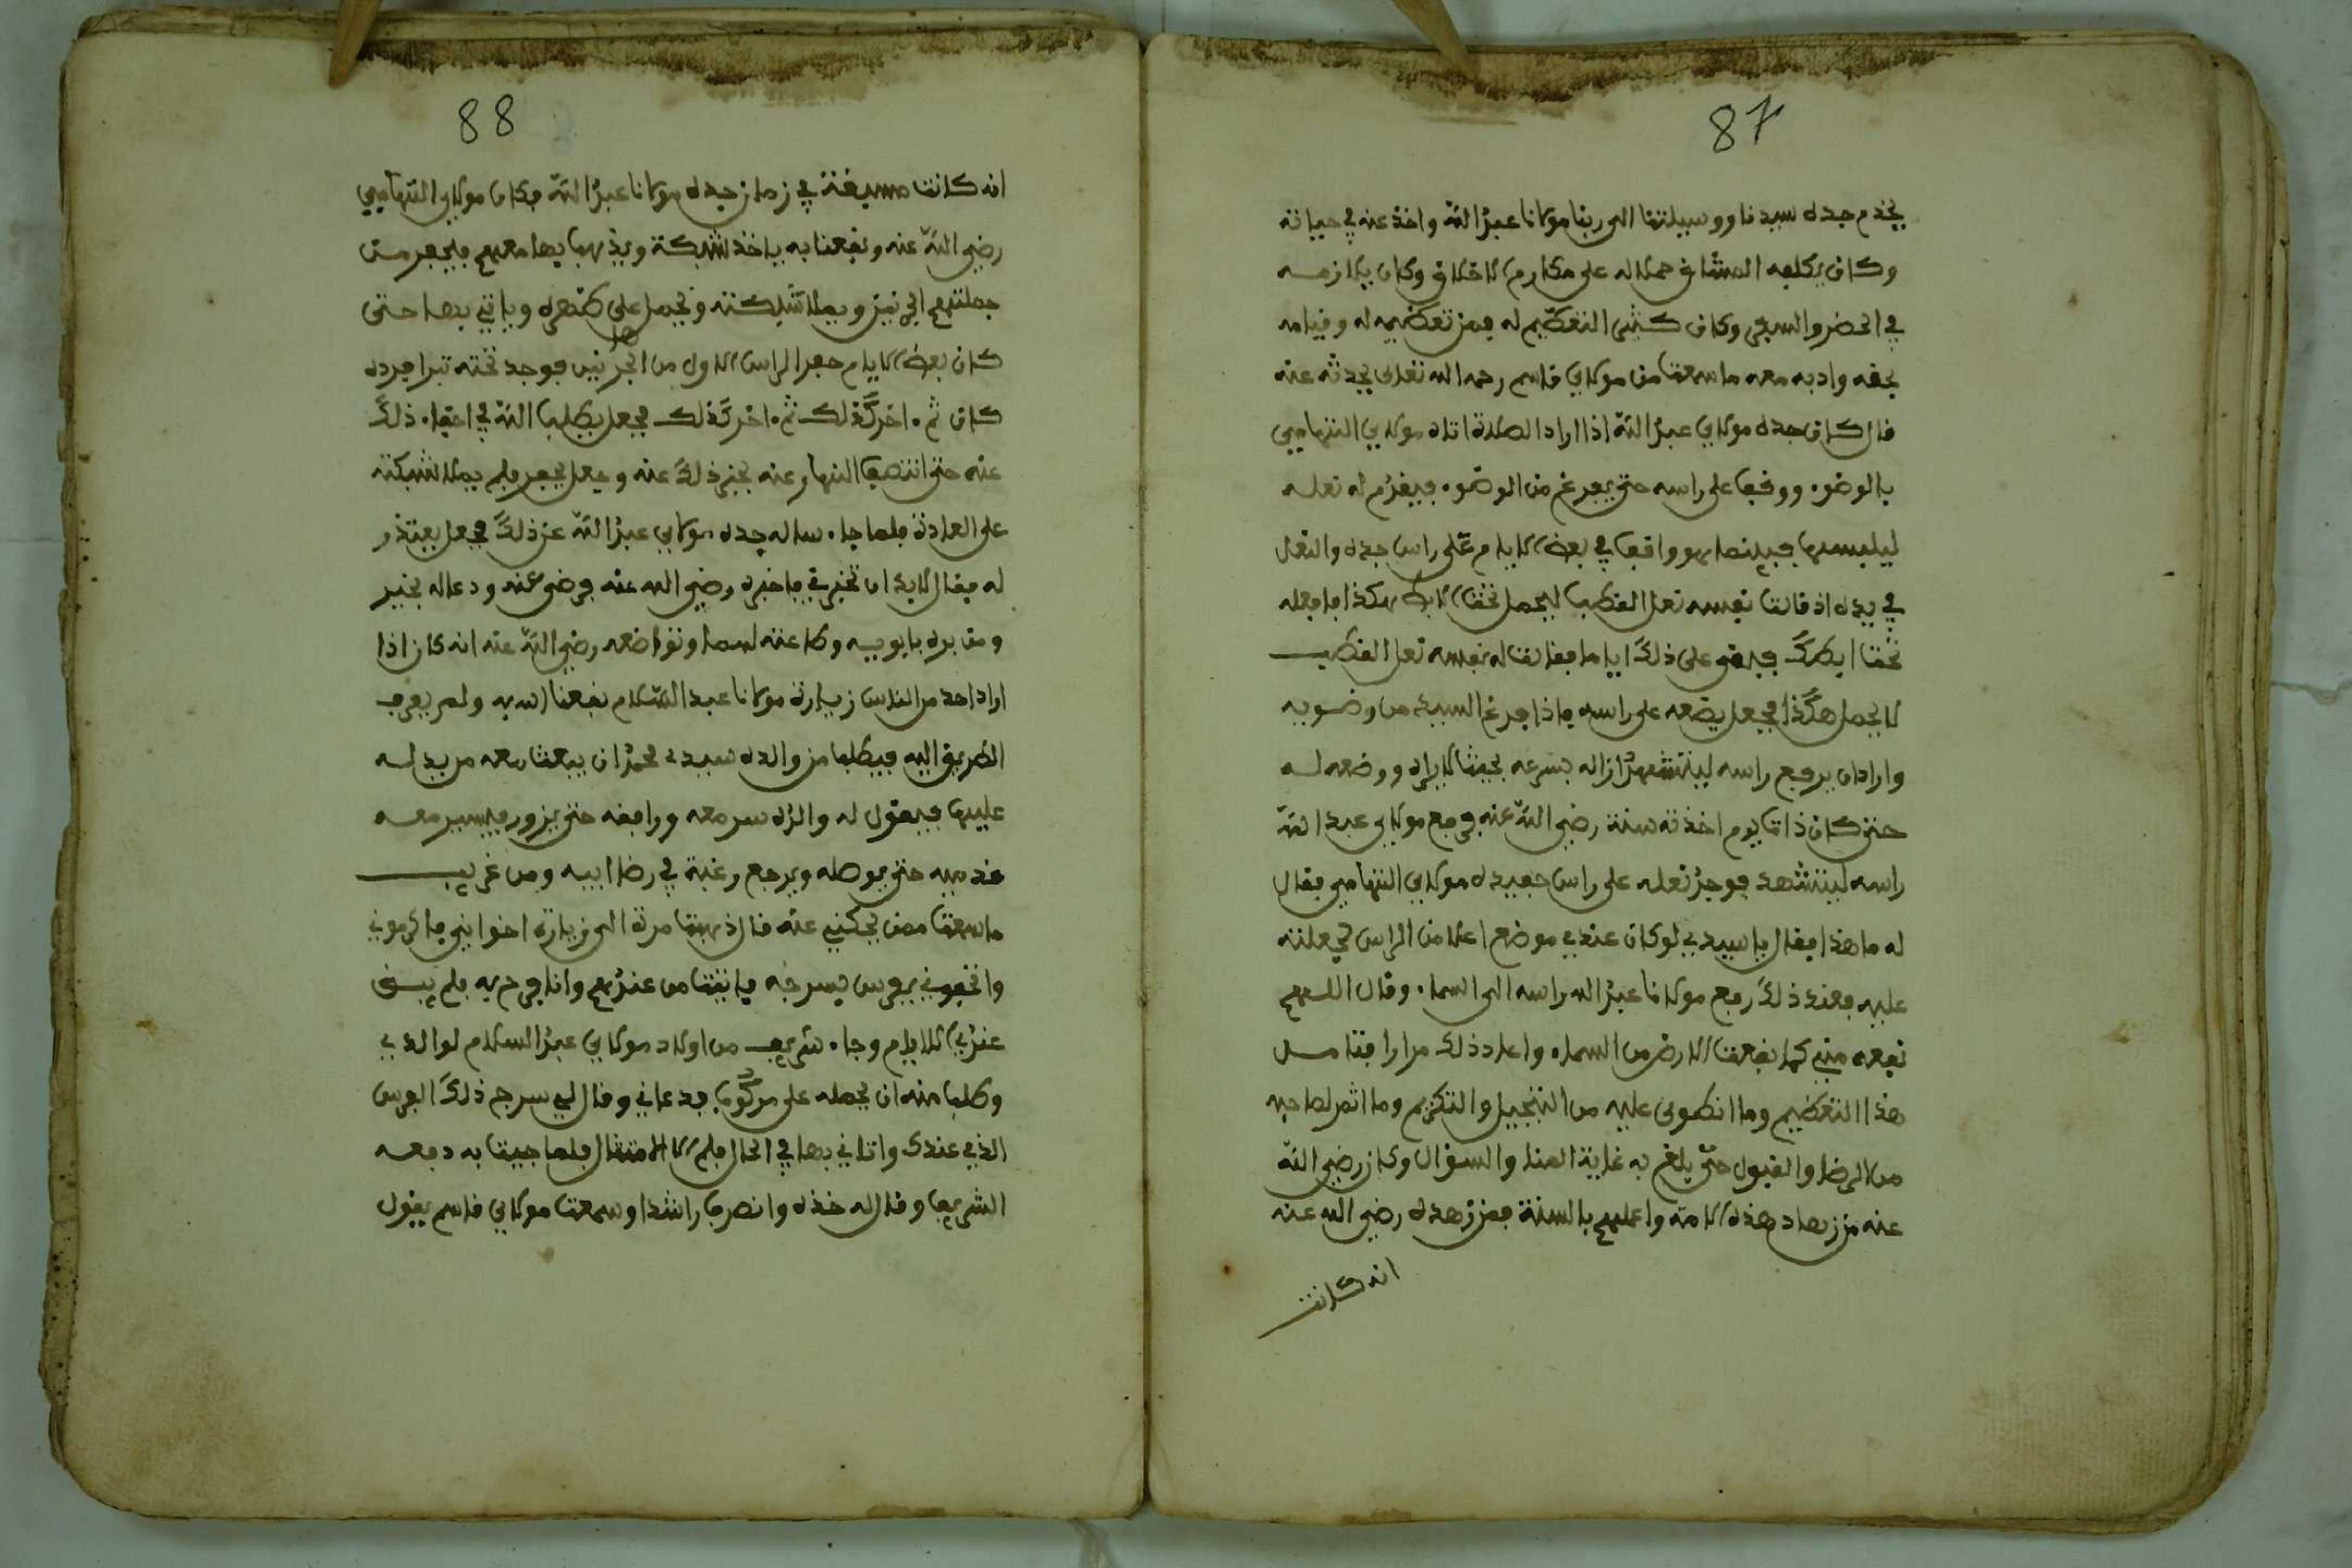 87
يخدم جده سيدنا ووسيلتنا الى ربنا مولانا عبد الله واخذ عنه في حياته
وكان يكلفه المشاق حملا له على مكارم الاخلاق وكان يلازمه
في الحضر والسفر وكان كثير التعظيم له فمن تعظيمه له وقيامه
بحقه وادبه معه ما سمعت من مولاي قاسم رحمه الله تعلى يحدث عنه
قال كان جده مولاي عبد الله اذا اراد الصلاة اتاه مولاي التهامي
بالوضو. ووقف على راسه حتى يفرغ من الوضو. فيقدم له نعله
ليلبسها فبينما هو واقف في بعض الايام على راس جده والنعل
في يده اذ قالت نفسه نعل القطب ليحمل تحت الابط هكذا فافعله
تحت ابطك فبقى على ذلك اياما فقالت له نفسه نعل القطب
لا يحمل هكذا فجعل يضعه على راسه فاذا فرغ السيد من وضويه
واراد ان يرفع راسه ليتشهد ازاله بسرعه بحيث لا يراه ووضعه له
حتى كان ذات يوم اخذته سنة رضي الله عنه فرفع مولاي عبد الله
راسه ليتشهد فوجد نعله على راس حفيده مولاي التهامي فقال
له ما هذا فقال يا سيدي لو كان عندي موضع اعلا من الراس لجعلته
عليه فعند ذلك رفع مولانا عبد الله راسه الى السما. وقال اللهم
نفعه مني كما نفعت الارض من السماء واعاد ذلك مرارا فتامل
هذا التعظيم وما انطوى عليه من التبجيل والتكريم وما اثمر لصاحبه
من الرضا والقبول حتى بلغ به غاية المنا والسؤال وكان رضي الله
عنه من زهاد هذه الامة واعلمهم بالسنة فمن زهده رضي الله عنه
انه كانت
88
انه كانت مسيغة في زمان جده مولانا عبد الله فكان مولاي التهامي
رضي الله عنه ونفعنا به ياخذ شبكة ويذهب بها معهم فيحفر من
جملتهم ايرنيز ويملا شبكته ويحمل على ظهره وياتي بها حتى
كان بعض الايام حفر الراس الاول من ايرنيز فوجد تحته تبرا فرده
كان ثم. اخر كذلك ثم. اخر كذلك فجعل يطلب الله في اخفا. ذلك
عنه حتى انتصف النهار عنه ذلك عنه وجعل يحفر فلم يملا شبكته
على العادة فلما جا. ساله جده مولاي عبد الله عن ذلك فجعل يعتذر
له فقال لابد ان تخبرني فاخبره رضي الله عنه فرضي عنه ودعا له بخير
ومن بره بابويه وطاعته لهما وتواضعه رضي الله عنه انه كان اذا
اراد احد من الناس زيارة مولانا عبد السلام نفعنا الله به ولم يعرف
الطريق اليه فيطلب من والده سيدي محمد ان يبعث معه من يدله
عليها فيقول له والده سر معه ورافقه حتى يزور فيسير معه
قدميه حتى يوصله ويرجع رغبة في رضا ابيه ومن غريب
ما سمعت ممن يحكي عنه قال ذهبت مرة الى زيارة اخواني فاكرموني
واتحفوني بفرس بسرجه فاتيت من عندهم وانا فرح به فلم يبق
عندي الا ايام وجا. شريف من اولاد مولاي عبد السلام لوالدي
وطلب منه ان يحمله على مركوب فدعاني وقال لي سرج ذلك الفرس
الذي عندك واتاني بها في الحال فلم الا الامتثال فلما جيت به دفعه
الشريف وقال له خذه وانصرف راشدا وسمعت مولاي قاسم يقول